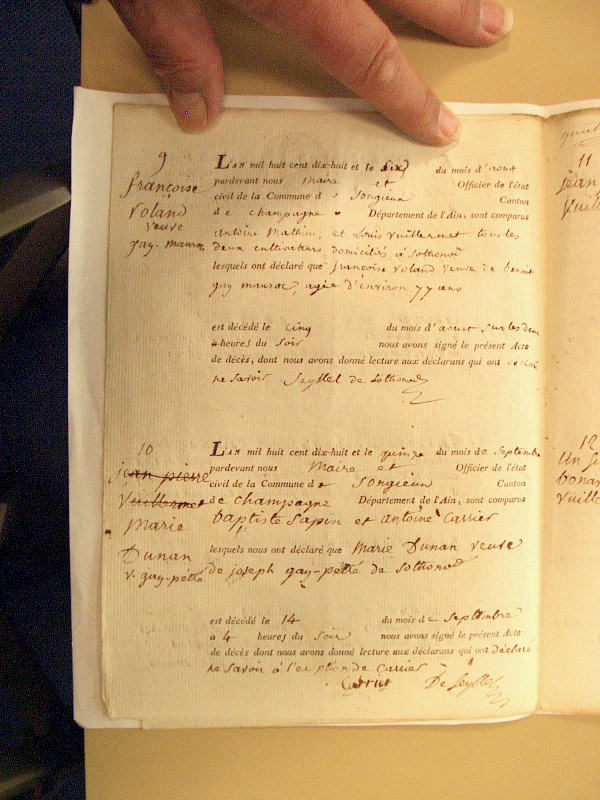 9
françoise
Voland
veuve
gay-mauroz
LAN mil huit cent dix-huit et le six du mois d'aout
pardevant nous Maire et Officier de l'état
civil de la Commune de Songieux Canton
de champagne Département de l'Ain, sont comparus
antoine Mathieu, et Louis Vuillermet tous les
deux cultivateurs domiciliés à Sothonod
lesquels ont déclaré que françoise Voland Veuve de benoit
gay mauroz, agée d'environ 77 ans
est décédé le cinq du mois d'aoust sur les deux
à heures du Soir nous avons signé le présent Acte
de décès, dont nous avons donné lecture aux déclarans qui ont déclaré
ne Savoir Seyssel de Sothonod
10
jean pierre
Vuillermet
Marie
Dunan
v. gay-pétré
LAN mil huit cent dix-huit et le quinze du mois de Septembre
pardevant nous Maire et Officier de l'état
civil de la Commune de Songieux Canton
de champagne Département de l'Ain, sont comparus
baptiste Sapin et antoine Carrier
lesquels nous ont déclaré que Marie Dunan veuve
de joseph gay-pétré de Sothonod
est décédé le 14 du mois de Septembre
à 4 heures du Soir nous avons signé le présent Acte
de décès dont nous avons donné lecture aux déclarans qui ont déclaré
ne Savoir à l'exeption de Carrier
Carrier De Seyssel
11
jean
Vuill
12
un
bonar
Vuille